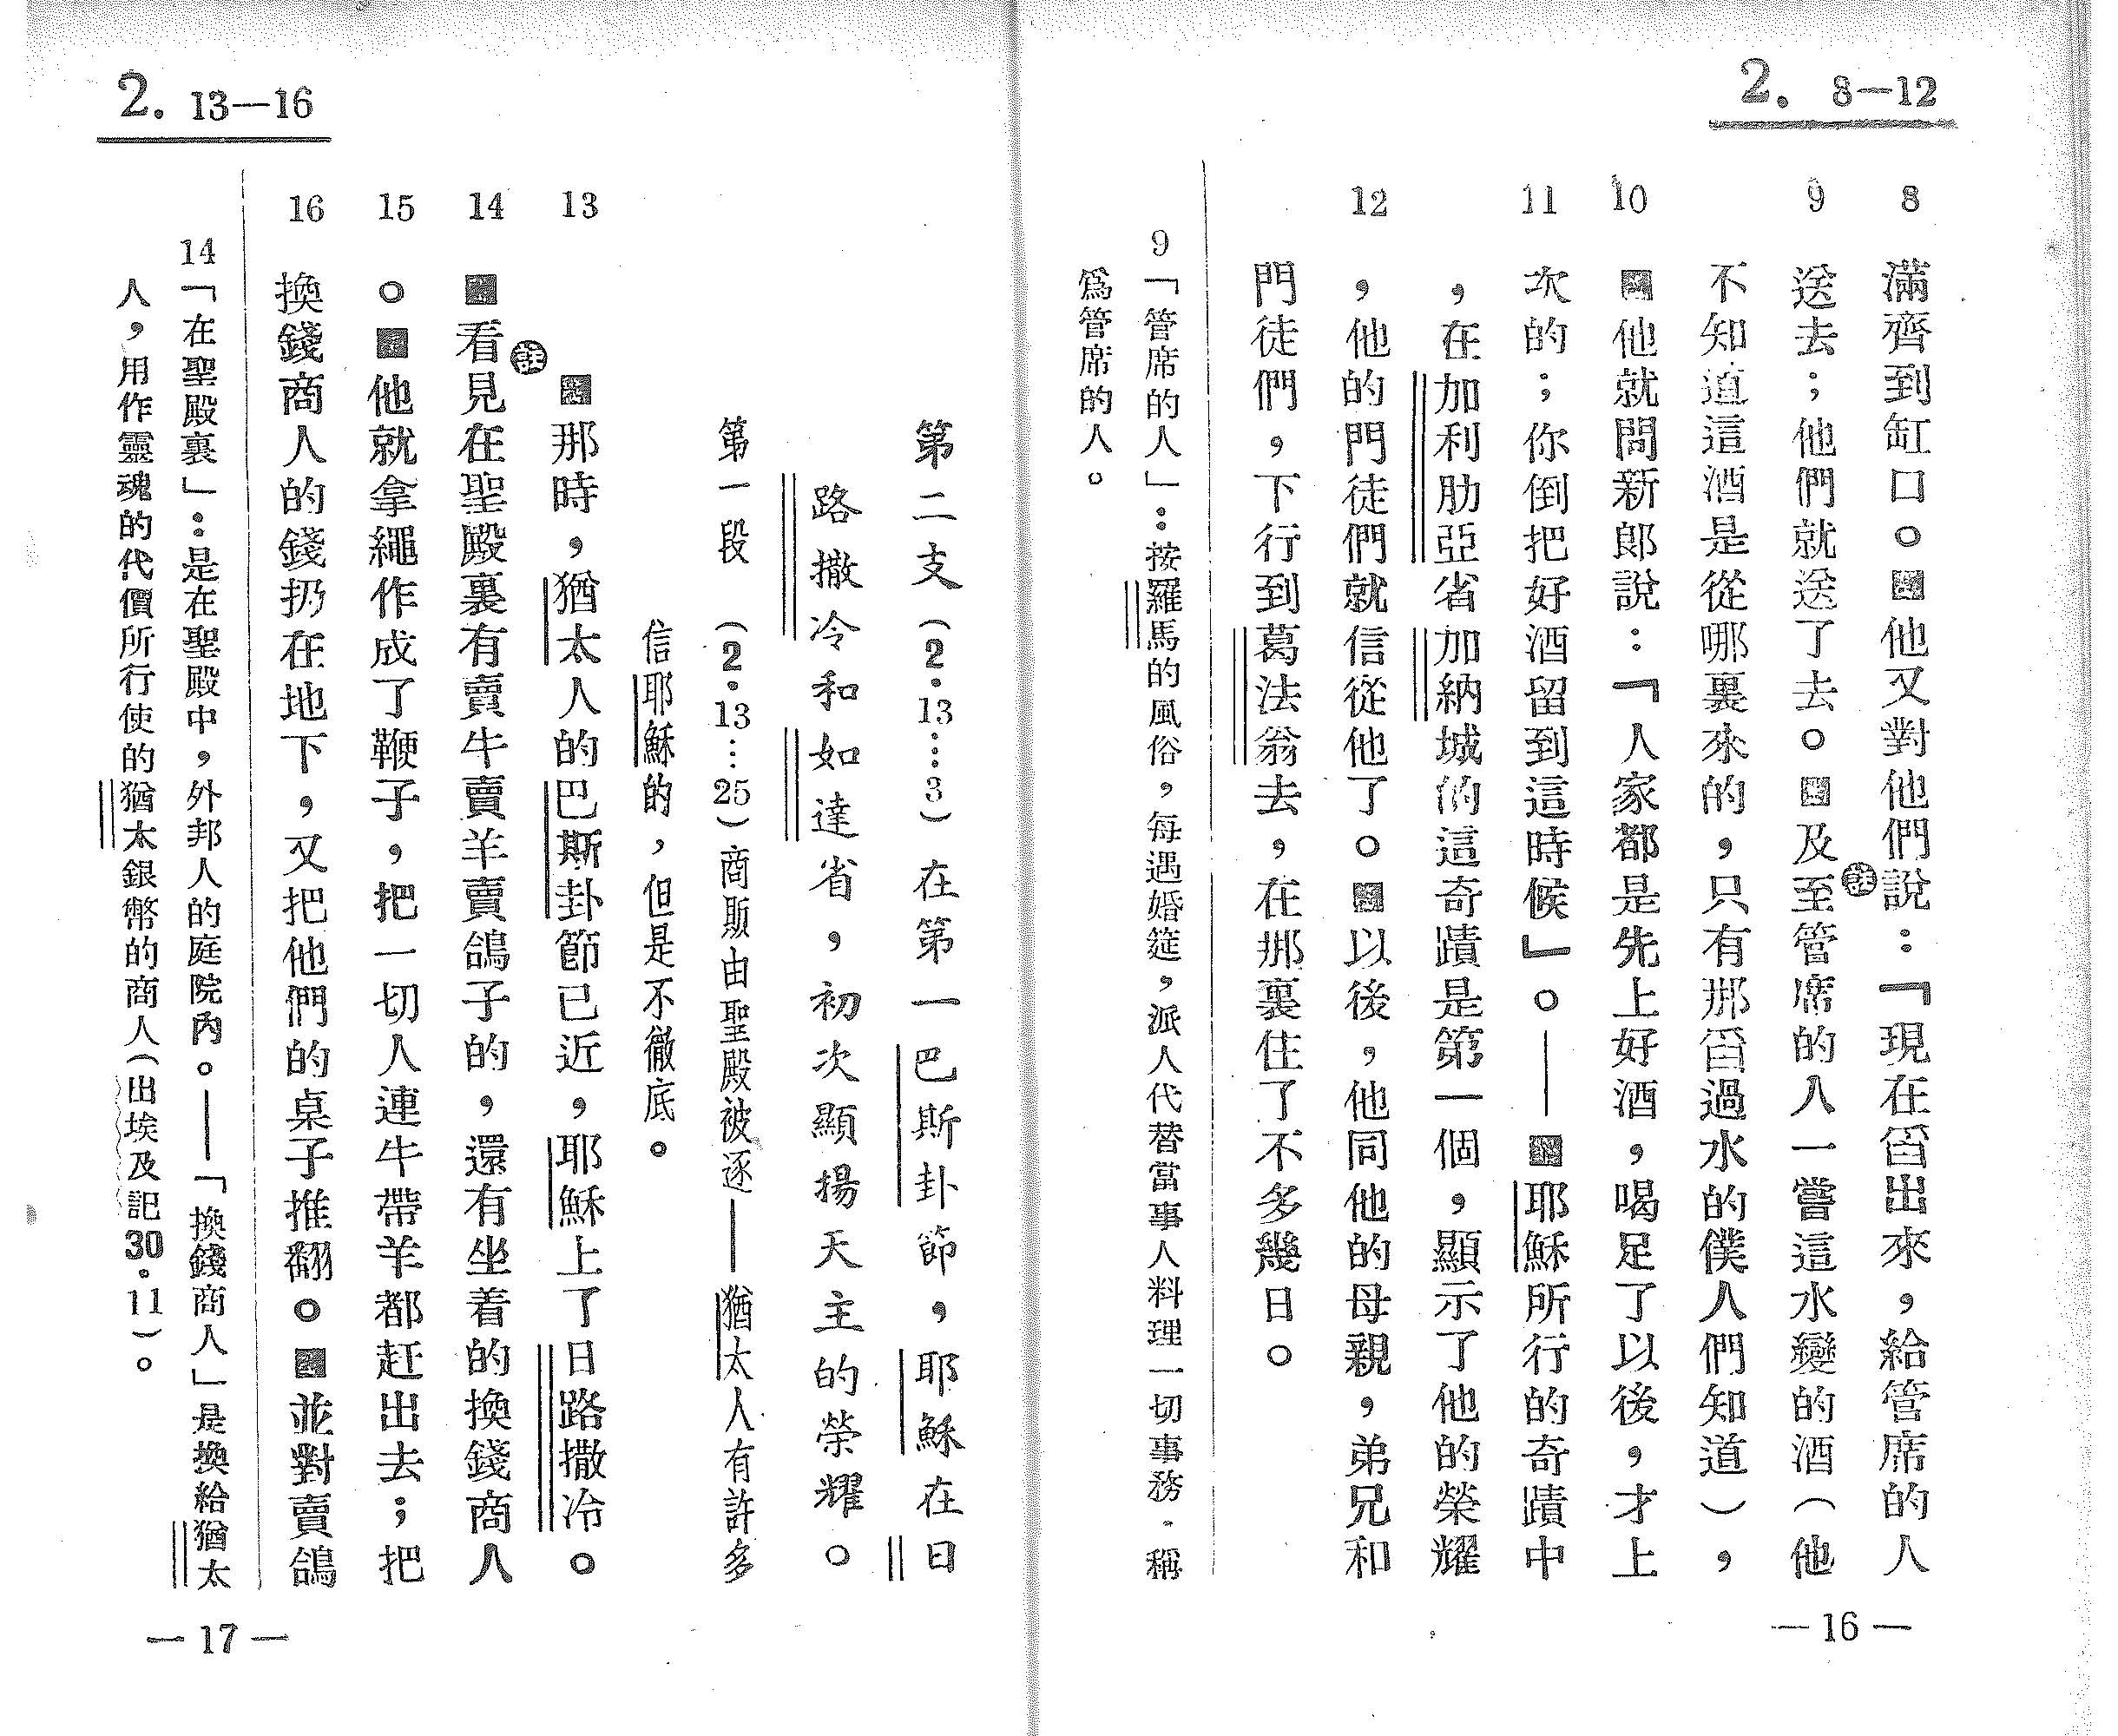 2. 8—12
8 滿齊到缸口。他又對他們說：『現在舀出來，給管席的人
註
9 送去；他們就送了去。及至管席的人一嘗這水變的酒（他
不知道這酒是從哪裏來的，只有那舀過水的僕人們知道），
10 他就問新郎說：『人家都是先上好酒，喝足了以後，才上
11 次的；你倒把好酒留到這時候』。——耶穌所行的奇蹟中
，在加利肋亞省加納城的這奇蹟是第一個，顯示了他的榮耀
12 ，他的門徒們就信從他了。以後，他同他的母親，弟兄和
門徒們，下行到葛法翁去，在那裏住了不多幾日。
9 「管席的人」：按羅馬的風俗，每遇婚筵，派人代替當事人料理一切事務．稱
爲管席的人。
—16—
2. 13—16
第二支（2．13…3）在第一巴斯卦節，耶穌在日
路撒冷和如達省，初次顯揚天主的榮耀。
第一段 （2．13…25）商販由聖殿被逐——猶太人有許多
信耶穌的，但是不徹底。
13 那時，猶太人的巴斯卦節已近，耶穌上了日路撒冷。
註
14 看見在聖殿裏有賣牛賣羊賣鴿子的，還有坐着的換錢商人
15 。他就拿繩作成了鞭子，把一切人連牛帶羊都赶出去；把
16 換錢商人的錢扔在地下，又把他們的桌子推翻。並對賣鴿
14 「在聖殿裏」：是在聖殿中，外邦人的庭院內。——「換錢商人」是換給猶太
人，用作靈魂的代價所行使的猶太銀幣的商人（出埃及記30．11）。
—17—